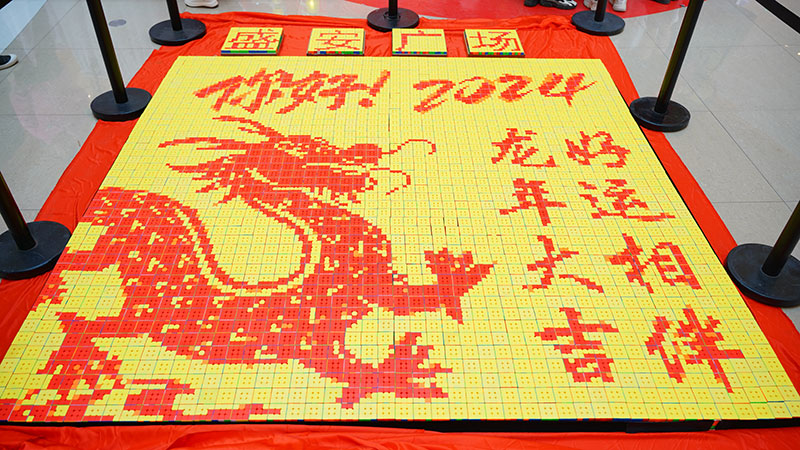 盛安广场
你好！2024
龙年大吉
好运相伴